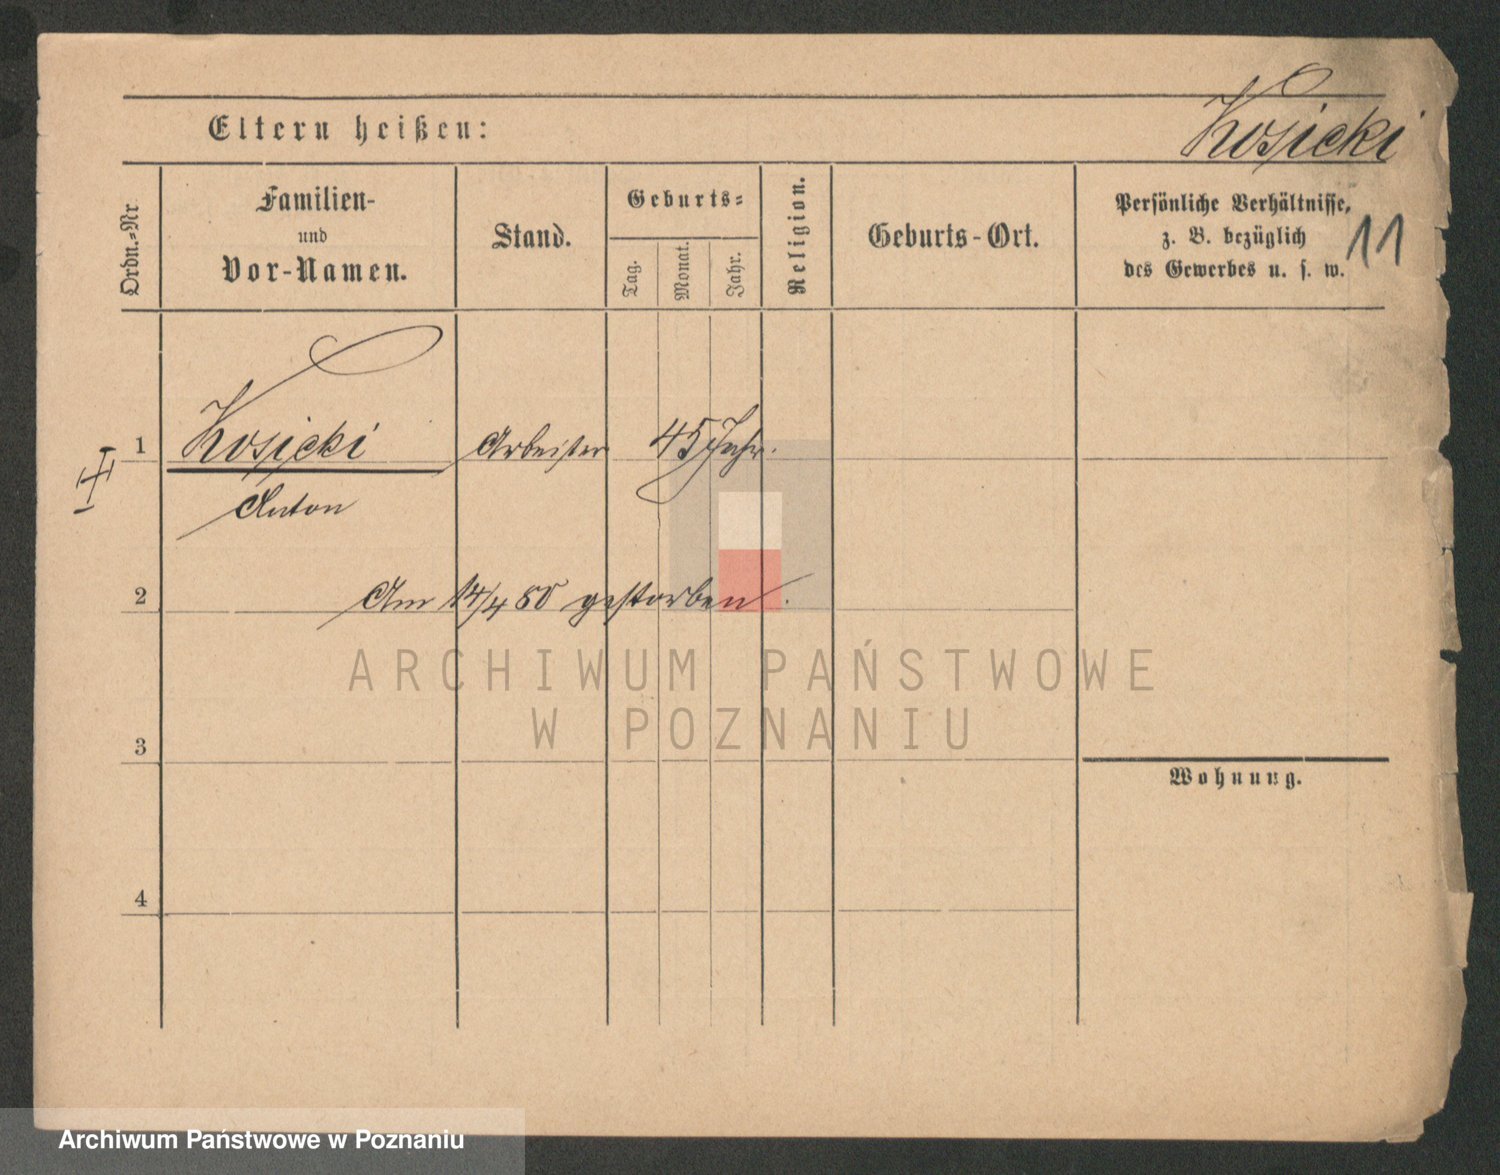 Kosicki
Eltern heißen:
Ordn.-Nr
Familien-
und
Vor-Namen.
Stand.
Geburts-
Tag.
Monat.
Jahr.
Religion.
Geburts-Ort.
Persönliche Verhältnisse,
z. B. bezüglich
des Gewerbes u. s. w.
11
1 Kosicki Arbeiter 45 Jahr.
Anton
2 Am 14/4 80 gestorben.
ARCHIWUM PAŃSTWOWE
W POZNANIU
3
Wohnung.
4
Archiwum Państwowe w Poznaniu